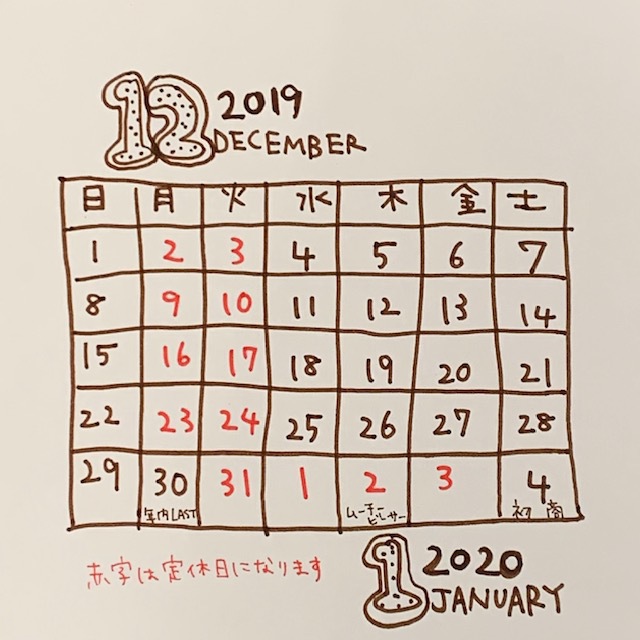 12 2019
DECEMBER
日 月 火 水 木 金 土
1 2 3 4 5 6 7
8 9 10 11 12 13 14
15 16 17 18 19 20 21
22 23 24 25 26 27 28
29 30 31 1 2 3 4
年内LAST ムーチー 初商
ビーサー
赤字は定休日になります
1 2020
JANUARY